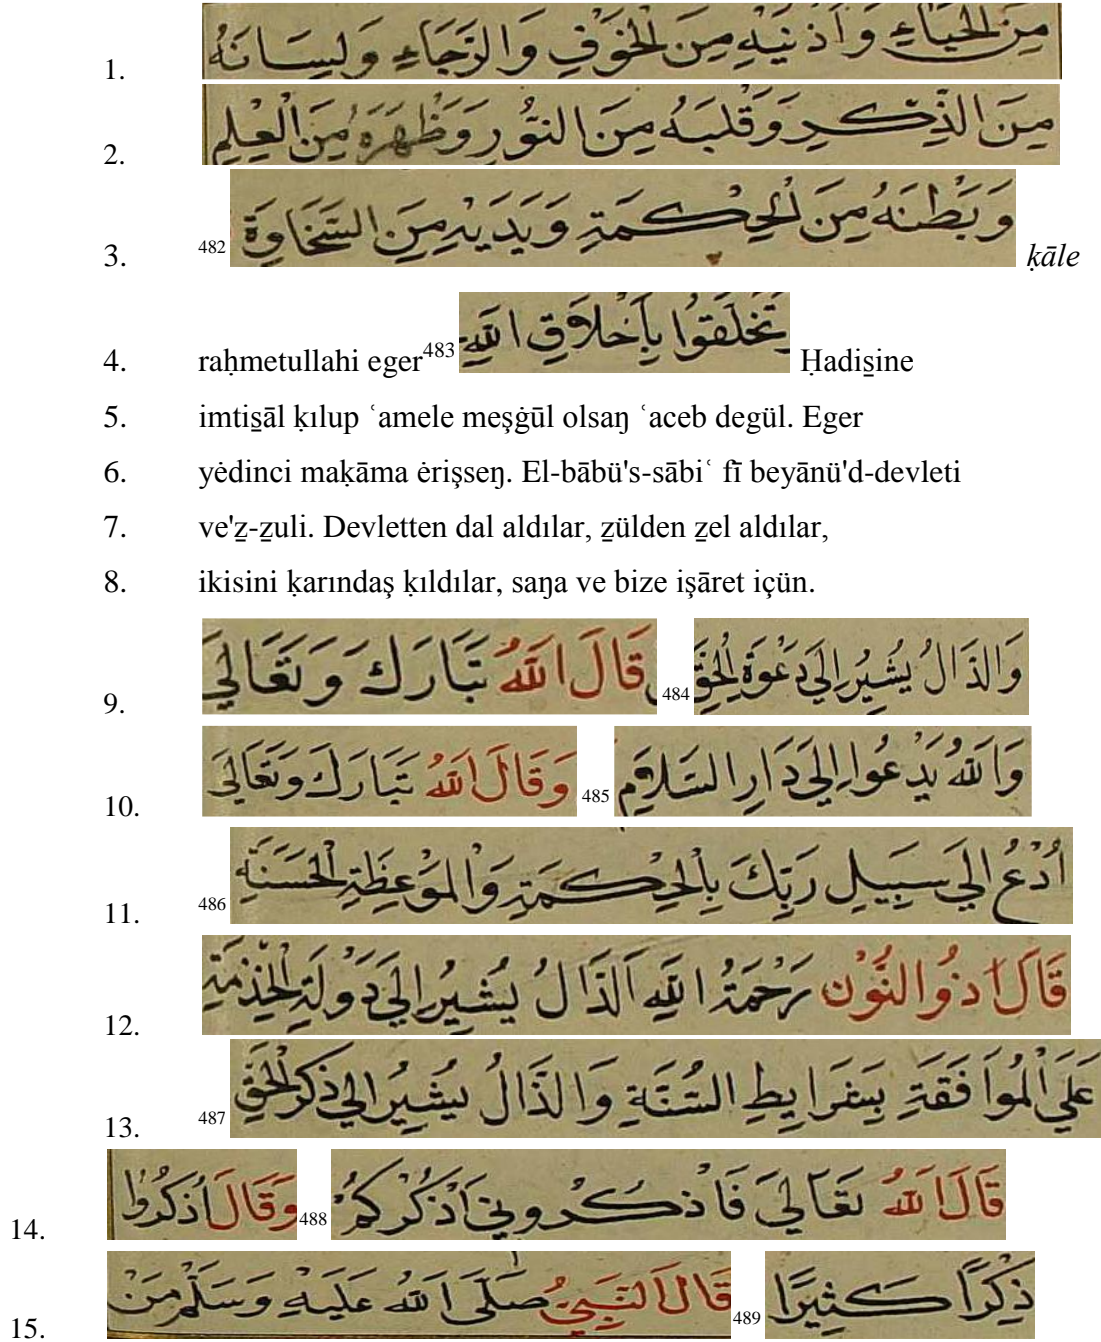 1. مِنَ الْحَيَاءِ وَاُذْنَيْهِ مِنَ الْخَوْفِ وَالرَّجَاءِ وَلِسَانَهُ
2. مِنَ الذِّكْرِ وَقَلْبَهُ مِنَ النُّورِ وَظَهْرَهُ مِنَ الْعِلْمِ
3. وَبَطْنَهُ مِنَ الْحِكْمَةِ وَيَدَيْهِ مِنَ السَّخَاوَةِ 482 ḳāle
4. raḥmetullahi eger483 تَخَلَّقُوا بِأَخْلَاقِ اللَّهِ Ḥadis̱ine
5. imtis̱āl ḳılup ʿamele meşġūl olsaŋ ʿaceb degül. Eger
6. yėdinci maḳāma ėrişseŋ. El-bābü's-sābiʿ fī beyānü'd-devleti
7. ve'ẕ-ẕuli. Devletten dal aldılar, ẕülden ẕel aldılar,
8. ikisini ḳarındaş ḳıldılar, saŋa ve bize işāret içün.
9. وَالذَالُ يُشِيرُ اِلَى دَعْوَةِ الْحَقِّ 484 قَالَ اللَّهُ تَبَارَكَ وَتَعَالَى
10. وَاللَّهُ يَدْعُوا اِلَى دَارِ السَّلَامِ 485 وَقَالَ اللَّهُ تَبَارَكَ وَتَعَالَى
11. اُدْعُ اِلَى سَبِيلِ رَبِّكَ بِالْحِكْمَةِ وَالْمَوْعِظَةِ الْحَسَنَةِ 486
12. قَالَ ذُو النُّونْ رَحْمَةُ اللَّهِ اَلذَّالُ يُشِيرُ اِلَى دَوْلَةِ الْخِذْمَةِ
13. عَلَى الْمُوَافَقَةِ بِشَرَايِطِ السُّنَّةِ وَالذَّالُ يُشِيرُ اِلَى ذِكْرِ الْحَقِّ 487
14. قَالَ اللَّهُ تَعَالَى فَاذْكُرُونِي اَذْكُرْكُمْ 488 وَقَالَ اُذْكُرُوا
15. ذِكْرًا كَثِيرًا 489 قَالَ النَّبِيُّ صَلَّى اللَّهُ عَلَيْهِ وَسَلَّمَ مَنْ